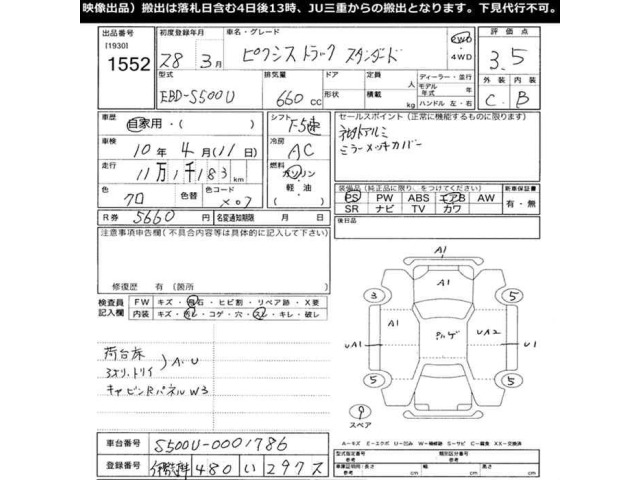 映像出品）搬出は落札日含む4日後13時、JU三重からの搬出となります。下見代行不可。
出品番号 初度登録年月 車名・グレード 評価点
[1930]
1552 28年3月 ピクシス トラック スタンダード 2WD・4WD 3.5
型式 排気量 ドア 定員 人 ディーラー・並行 外装 内装
EBD-S500U 660cc 形状 積載 kg モデル年式 年 ハンドル 左・右 C B
車歴 自家用・( ) シフト F5速
車検 10年4月(11日) 冷房 AC
走行 11万1千183km 燃料 ガソリン・軽油 ( )
色 クロ 色替 色コード X07
R券 5660 名変通知期限 月 日
セールスポイント（正常に機能するものに限ります）
社外アルミ
ミラーメッキカバー
装備品（純正品に限り、をつけてください） 新車保証書
PS PW ABS エアB AW 有・無
SR ナビ TV カワ
後日品
注意事項申告欄（不具合内容等は具体的に記入して下さい）
修復歴 有（箇所
検査員記入欄 FW キズ・飛石・ヒビ割・リペア跡・X要
内装 キズ・汚レ・コゲ・穴・スレ・キレ・破レ
荷台床
3オリ、トリイ ) A、U
キャビンRパネル W3
A1
A1
3 5
A1 UA2
UA1 U1
5 5
9
スペア
A－キズ E－エクボ U－凹み W－補修跡 S－サビ C－腐食 XX－交換済
車台番号 S500U-0001786
登録番号 480 い 297
型式指定番号 参考 類別区分番号 参考
車庫証明用・長さ 参考 cm 幅 cm 高さ cm